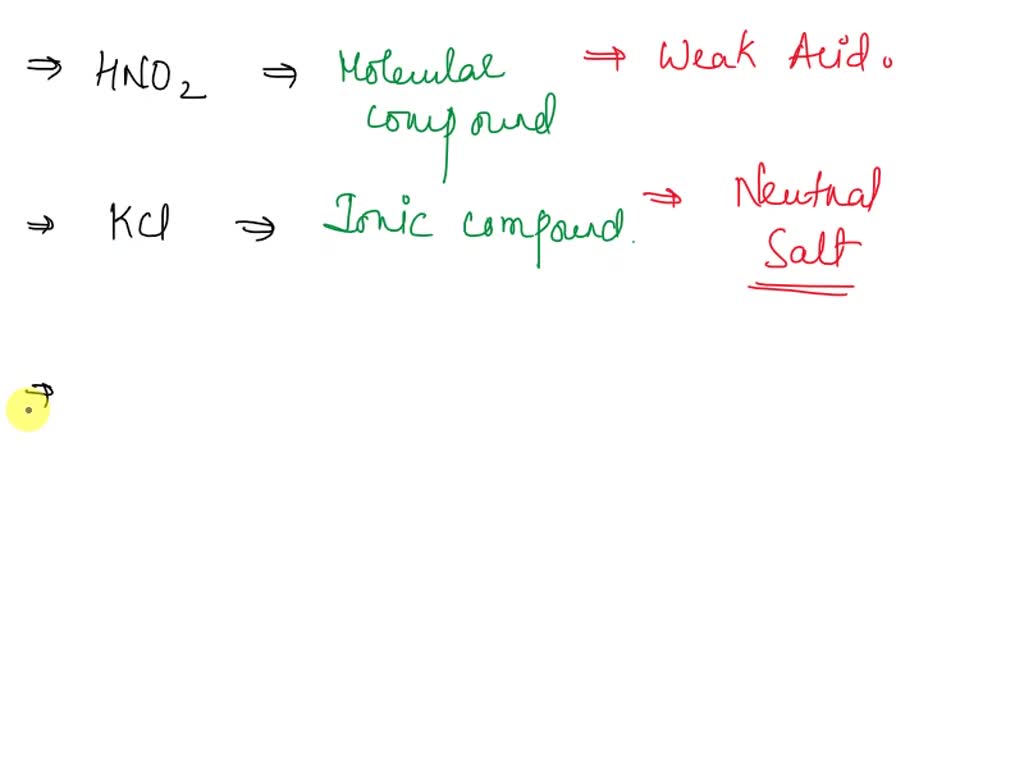 ⇒ HNO₂ ⇒ Molecular compound ⇒ Weak Acid.
⇒ KCl ⇒ Ionic compound. ⇒ Neutral Salt
⇒